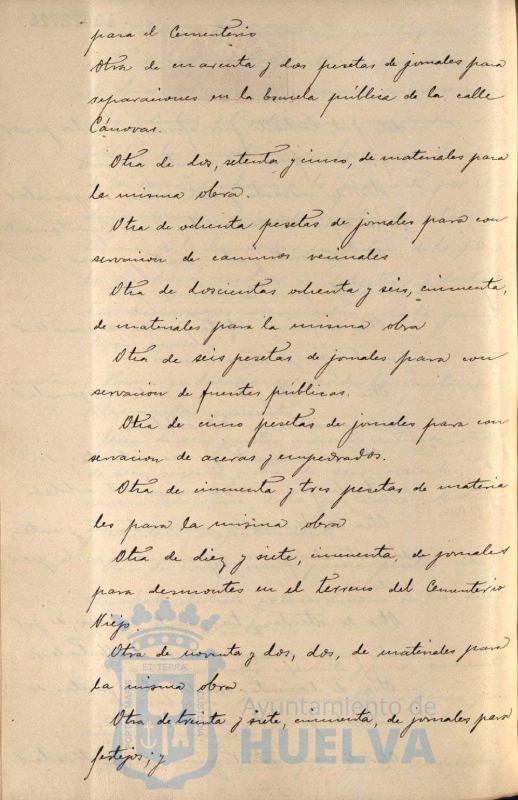 para el Cementerio
Otra de cuarenta y dos pesetas de jornales para
reparaciones en la Escuela pública de la calle
Cánovas.
Otra de dos, setenta y cinco, de materiales para
la misma obra.
Otra de ochenta pesetas de jornales para con
servacion de caminos vecinales
Otra de doscientas ochenta y seis, cincuenta,
de materiales para la misma obra
Otra de seis pesetas de jornales para con
servacion de fuentes públicas.
Otra de cinco pesetas de jornales para con
servacion de aceras y empedrados.
Otra de cincuenta y tres pesetas de materia
les para la misma obra
Otra de diez y siete, cincuenta, de jornales
para desmontes en el terreno del Cementerio
Viejo.
Otra de noventa y dos, dos, de materiales para
la misma obra
Otra de treinta y siete, cincuenta, de jornales para
festejos; y
ET TERRÆ
Ayuntamiento de
HUELVA